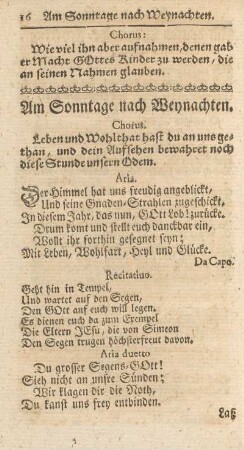 16 Am Sonntage nach Weynachten.
Chorus:
Wie viel ihn aber aufnahmen, denen gab
er Macht GOttes Kinder zu werden, die
an seinen Nahmen glauben.
Am Sonntage nach Weynachten.
Chorus.
Leben und Wohlthat hast du an uns ge-
than, und dein Aufsehen bewahret noch
diese Stunde unsern Odem.
Aria.
Der Himmel hat uns freudig angeblickt,
Und seine Gnaden-Strahlen zugeschickt,
In diesem Jahr, das nun, GOtt Lob! zurücke.
Drum komt und stellt euch danckbar ein,
Wollt ihr forthin gesegnet seyn;
Mit Leben, Wohlfart, Heyl und Glücke.
Da Capo.
Recitativo.
Geht hin in Tempel,
Und wartet auf den Segen,
Den GOtt auf euch will legen.
Es dienen euch da zum Exempel
Die Eltern JEsu, die von Simeon
Den Segen trugen höchsterfreut davon.
Aria duetto
Du grosser Segens-GOtt!
Sieh nicht an unsre Sünden;
Wir klagen dir die Noth,
Du kanst uns frey entbinden.
Laß